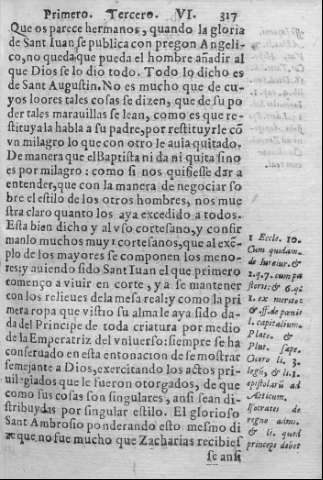 Primero. Tercero. VI. 317
Que os parece hermanos, quando la gloria
de Sant Iuan se publica con pregon Angeli-
co, no queda que pueda el hombre añadir al
que Dios se lo dio todo. Todo lo dicho es
de Sant Augustin. No es mucho que de cu-
yos loores tales cosas se dizen, que de su po
der tales marauillas se lean, como es que re-
stituya la habla a su padre, por restituyrle cõ
vn milagro lo que con otro le auia quitado.
De manera que el Baptista ni da ni quita sino
es por milagro: como si nos quisiesse dar a
entender, que con la manera de negociar so
bre el estilo de los otros hombres, nos mue
stra claro quanto los aya excedido a todos.
Esta bien dicho y al vso cortesano, y confir
manlo muchos muy cortesanos, que al exẽ-
plo de los mayores se componen los meno-
res; y auiendo sido Sant Iuan el que primero
començo a viuir en corte, y a se mantener
con los relieues dela mesa real; y como la pri
mera ropa que vistio su alma le aya sido da-
da del Principe de toda criatura por medio
de la Emperatriz del vniuerso: siempre se ha
conseruado en esta entonacion de se mostrar
semejante a Dios, exercitando los actos pri-
uilegiados que le fueron otorgados, de que
como sus cosas son singulares, ansi sean di-
stribuydas por singular estilo. El glorioso
Sant Ambrosio ponderando esto mesmo di
ze que no fue mucho que Zacharias recibies
se ansi
1 Eccle. 10.
Cum quidam.
de iureiur. &
l. capitalium.
Plato. &
Plut. sæpe.
Cicero li. 3.
legũ, & li. 1.
epistolarũ ad
Atticum.
Isocrates de
regno admi.
& li. quod
princeps debet